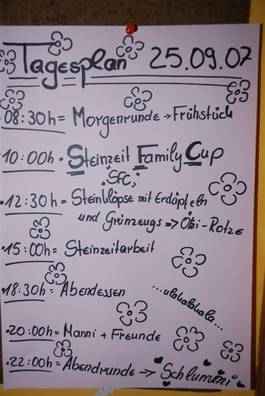 Tagesplan 25.09.07
08:30h = Morgenrunde → Frühstück
10:00h = Steinzeit Family Cup
SFC
12:30h = Steinklöpse mit Erdäpfeln
und Grünzeugs => Ötzi-Rotze
15:00h = Steinzeitarbeit
18:30h = Abendessen
...ulalalalala...
20:00h = Manni + Freunde
22:00h = Abendrunde → Schlummi